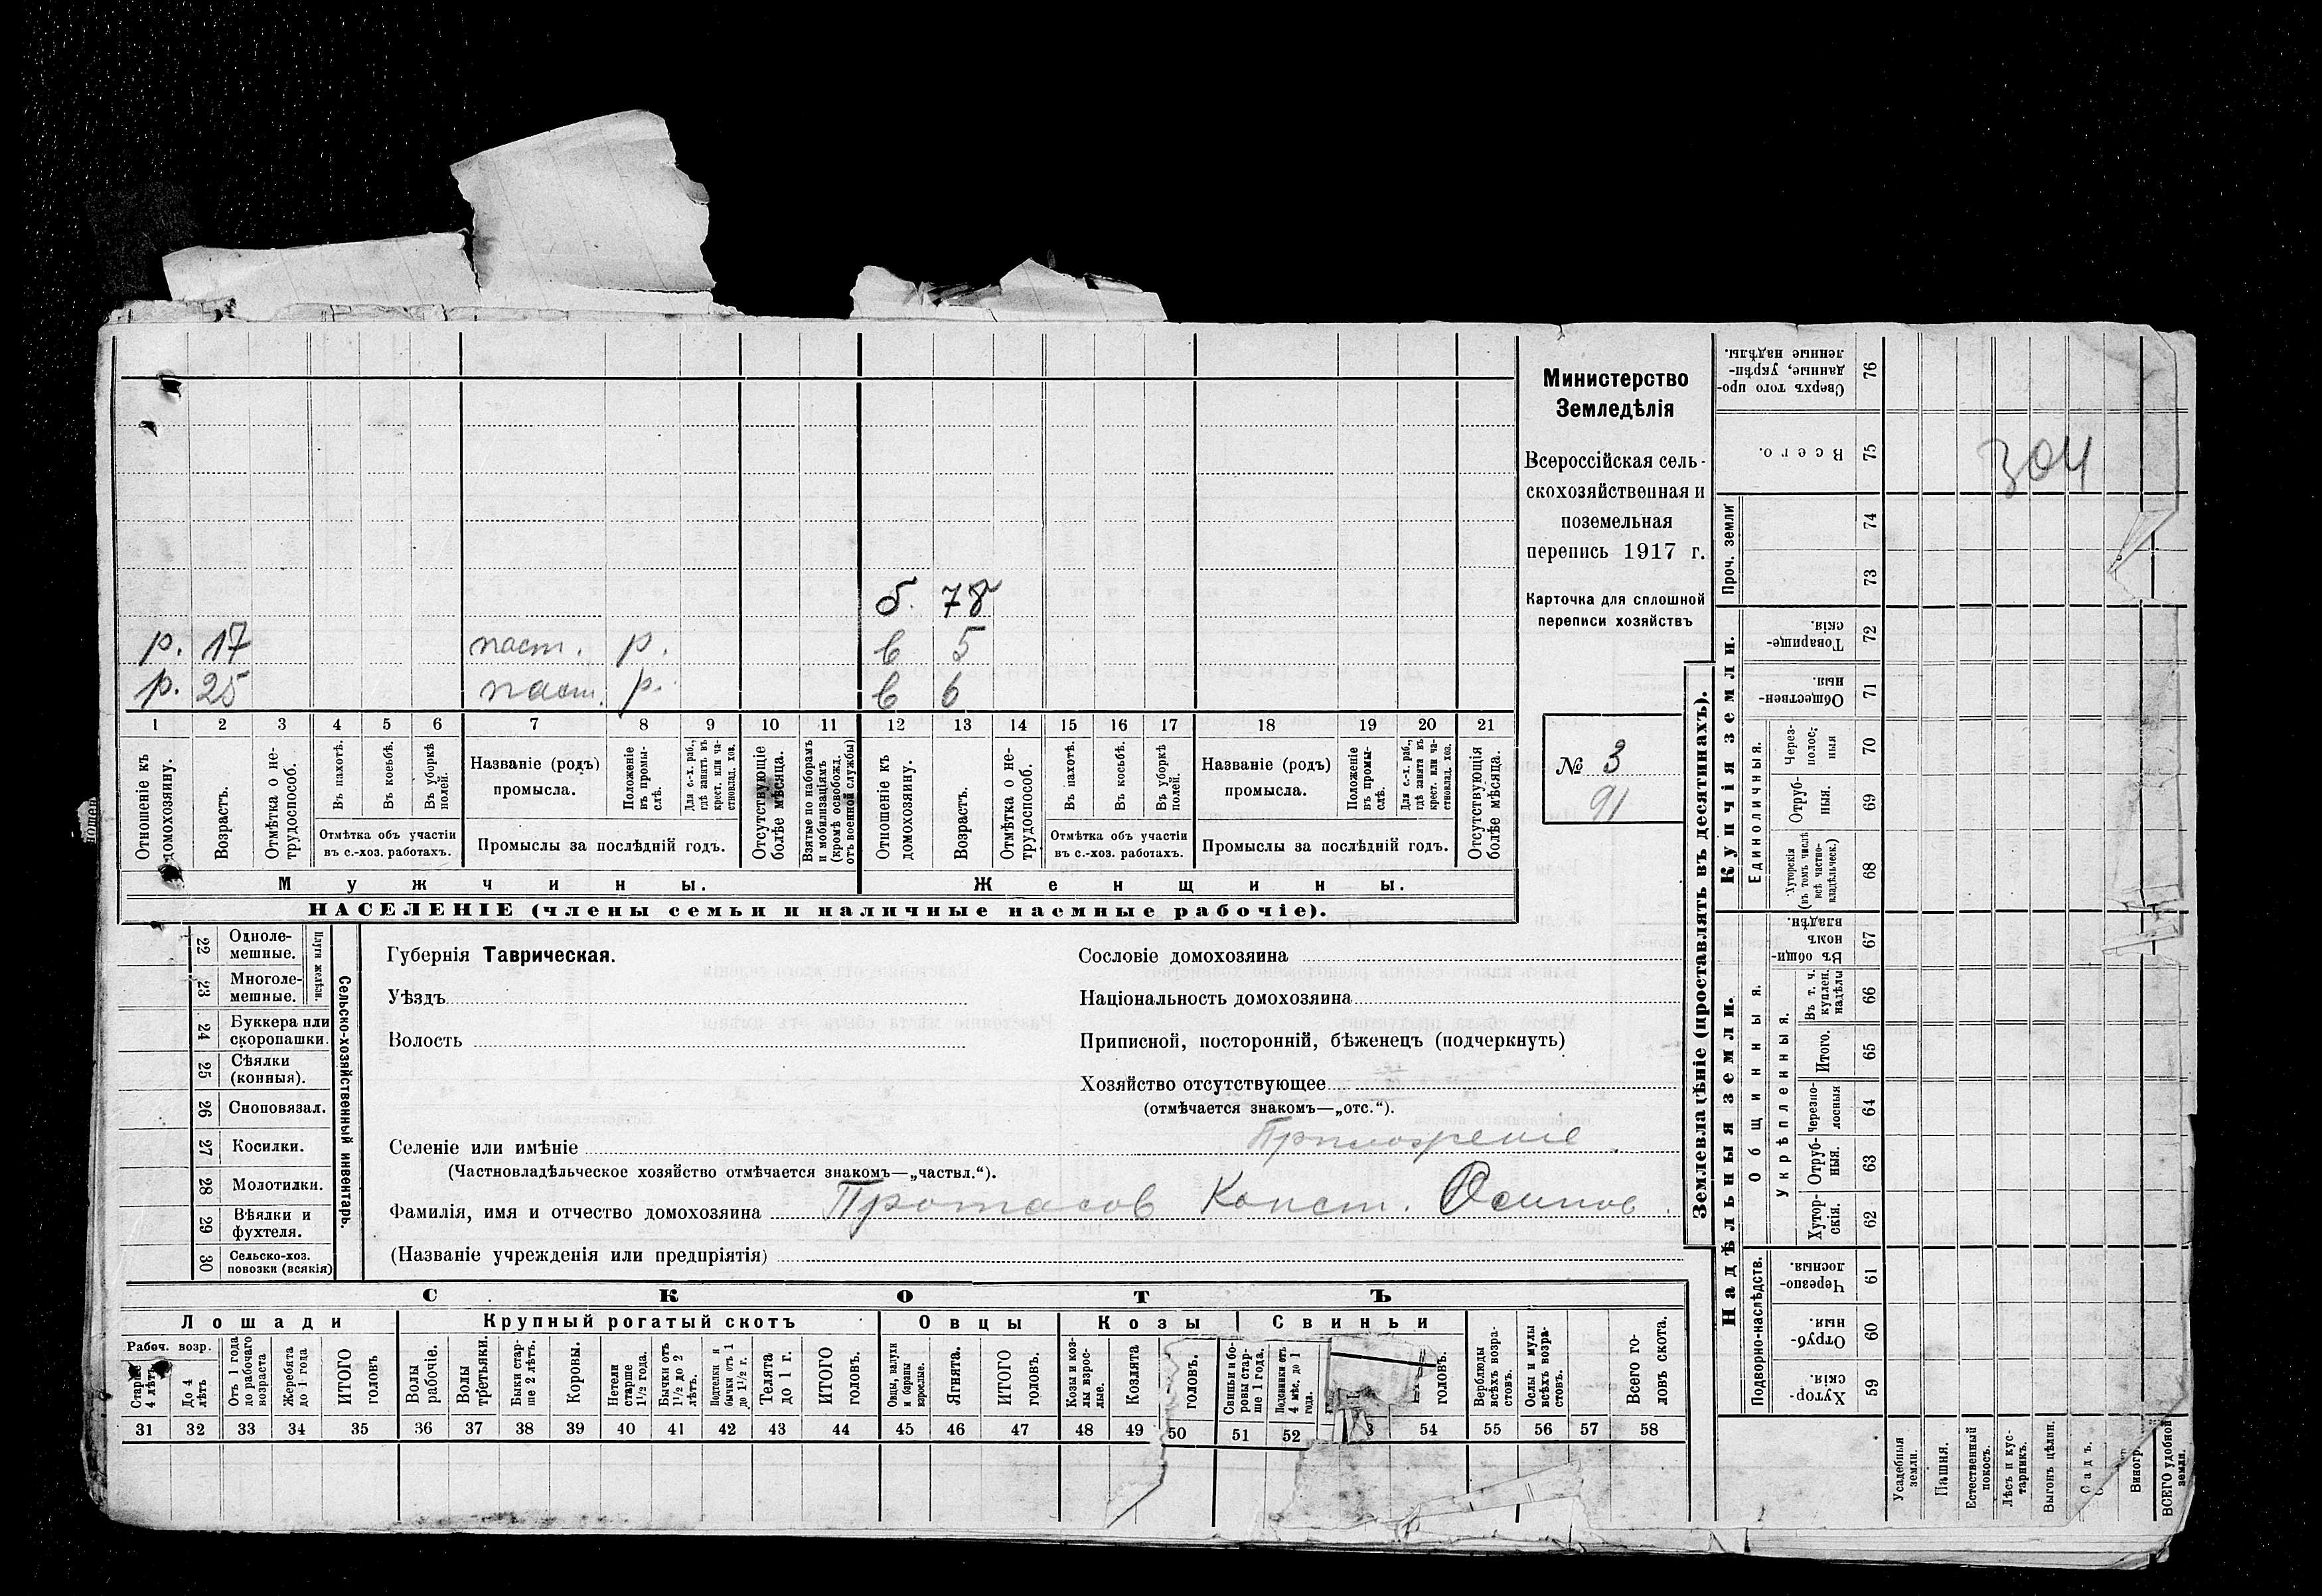 304
Министерство
Земледѣлія
Всероссійская сель-
скохозяйственная и
поземельная
перепись 1917 г.
Карточка для сплошной
переписи хозяйствъ
№ 3
91
б. 78
р. 17 паст. р. в 5
р. 25 паст. р. в 6
1 2 3 4 5 6 7 8 9 10 11 12 13 14 15 16 17 18 19 20 21
Отношеніе къ домохозяину.
Возрастъ.
Отмѣтка о не-трудоспособ.
Въ пахотѣ.
Въ косьбѣ.
Въ уборкѣ полей.
Отмѣтка объ участіи
въ с.-хоз. работахъ.
Названіе (родъ)
промысла.
Положеніе въ промы-слѣ.
Для с.-х. раб., гдѣ занятъ въ крест. или ча-стновлад. хоз.
Промыслы за послѣдній годъ.
Отсутствующіе болѣе мѣсяца.
Взятые по наборамъ и мобилизаціямъ (кромѣ освобожд. отъ военной службы)
Отношеніе къ домохозяину.
Возрастъ.
Отмѣтка о не-трудоспособ.
Въ пахотѣ.
Въ косьбѣ.
Въ уборкѣ полей.
Отмѣтка объ участіи
въ с.-хоз. работахъ.
Названіе (родъ)
промысла.
Положеніе въ промы-слѣ.
Для с.-х. раб., гдѣ занята въ крест. или ча-стновлад. хоз.
Промыслы за послѣдній годъ.
Отсутствующія болѣе мѣсяца.
Мужчины. Женщины.
НАСЕЛЕНІЕ (члены семьи и наличные наемные рабочіе).
Сельско-хозяйственный инвентарь.
Плуги желѣзн.
22 Одноле-мешные.
23 Многоле-мешные.
24 Буккера или скоропашки.
25 Сѣялки (конныя).
26 Сноповязал.
27 Косилки.
28 Молотилки.
29 Вѣялки и фухтеля.
30 Сельско-хоз. повозки (всякія)
Губернія Таврическая.
Уѣздъ
Волость
Сословіе домохозяина
Національность домохозяина
Приписной, посторонній, бѣженецъ (подчеркнуть)
Хозяйство отсутствующее
(отмѣчается знакомъ—„отс.“).
Селеніе или имѣніе
(Частновладѣльческое хозяйство отмѣчается знакомъ—„частвл.“).
Фамилія, имя и отчество домохозяина Протасов Конст. Осипов.
(Названіе учрежденія или предпріятія)
СКОТЪ
Лошади Крупный рогатый скотъ Овцы Козы Свиньи
Рабоч. возр.
Старше 4 лѣтъ
До 4 лѣтъ
Отъ 1 года до рабочаго возраста
Жеребята до 1 года
ИТОГО головъ
Волы рабочіе.
Волы третьяки.
Быки стар-ше 2 лѣтъ.
Коровы.
Нетели старше 1½ года.
Бычки отъ 1½ до 2 лѣтъ.
Подтелки и бычки отъ 1 до 1½ г.
Телята до 1 г.
ИТОГО головъ.
Овцы, валухи и бараны взрослые.
Ягнята.
ИТОГО головъ.
Козы и коз-лы взрос-лые.
Козлята
головъ.
Свиньи и бо-ровы стар-ше 1 года.
Подсвинки отъ 4 мѣс. до 1 года.
головъ.
Верблюды всѣхъ возра-стовъ.
Ослы и мулы всѣхъ возра-стовъ.
Всего го-ловъ скота.
31 32 33 34 35 36 37 38 39 40 41 42 43 44 45 46 47 48 49 50 51 52 3 54 55 56 57 58
Землевладѣніе (проставлять въ десятинахъ).
Купчія земли.
Надѣльныя земли.
Сверхъ того про-данные, укрѣп-ленные надѣлы. 76
Всего. 75
Проч. земли
74
73
Товарище-скія. 72
Обществен-ныя. 71
Единоличныя.
Через-полос-ныя 70
Отруб-ныя. 69
Хуторскія (въ томъ числѣ всѣ частно-владѣльческ.) 68
Общинныя.
Въ общи-номъ владѣн. 67
Укрѣпленныя.
Въ т. ч. куплен. надѣлы 66
Итого. 65
Черезпо-лосныя 64
Отруб-ныя. 63
Хутор-скія. 62
Подворно-наслѣдств.
Черезпо-лосныя. 61
Отруб-ныя. 60
Хутор-скія. 59
Усадебныя земли.
Пашня.
Естественный покосъ.
Лѣсъ и кус-тарникъ.
Выгонъ цѣлин.
Садъ.
Виногр.
ВСЕГО удобной земли.